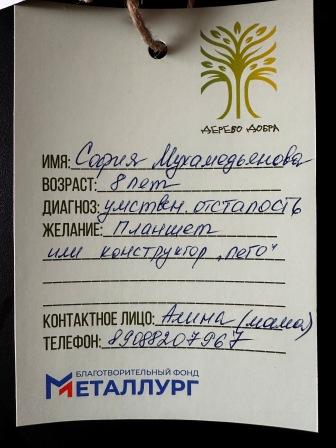 ДЕРЕВО ДОБРА
ИМЯ: София Мухамедьянова
ВОЗРАСТ: 8 лет
ДИАГНОЗ: умствен. отсталость
ЖЕЛАНИЕ: Планшет
или конструктор „лего“
КОНТАКТНОЕ ЛИЦО: Алина (мама)
ТЕЛЕФОН: 89088207967
БЛАГОТВОРИТЕЛЬНЫЙ ФОНД
МЕТАЛЛУРГ